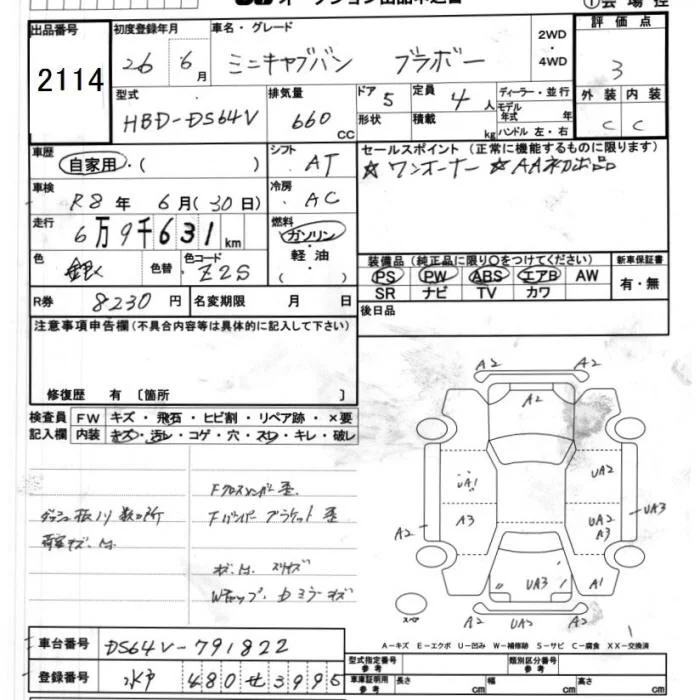 オークション出品申込書
①会場控
出品番号 初度登録年月 車名・グレード 評価点
2114 26年6月 ミニキャブバン ブラボー 2WD・4WD 3
型式 排気量 ドア 定員 ディーラー・並行 外装 内装
HBD-DS64V 660cc 5 4人 モデル年式 年 C C
形状 積載 kg ハンドル 左・右
車歴 シフト セールスポイント (正常に機能するものに限ります)
自家用・( ) AT ☆ワンオーナー ☆AA初出品
車検 冷房
R8年 6月(30日) AC
走行 燃料
6万9千631km ガソリン・軽油・( )
色 色替 色コード 装備品(純正品に限り○をつけてください) 新車保証書
銀 Z2S PS PW ABS エアB AW 有・無
R券 8230円 名変期限 月 日 SR ナビ TV カワ
注意事項申告欄(不具合内容等は具体的に記入して下さい) 後日品
修復歴 有〔箇所 〕
検査員 FW キズ・飛石・ヒビ割・リペア跡・×要
記入欄 内装 キズ・汚レ・コゲ・穴・スレ・キレ・破レ
A2 A2
A2
UA1 UA2
A3 UA2 UA3
A2 A3
UA3 A1
A2 UA2 A2
スペア
Fクロスメンバー 歪
ダッシュ板ノリ数ヶ所 Fバンパーブラケット 歪
荷室キズ・凹
キズ・凹 スリキズ
Wキャップ・Dミラーキズ
A－キズ E－エクボ U－凹み W－補修跡 S－サビ C－腐食 XX－交換済
車台番号 DS64V-791822
型式指定番号 参考 類別区分番号 参考
登録番号 水戸 480 せ 3995
車庫証明用 参考 長さ cm 幅 cm 高さ cm